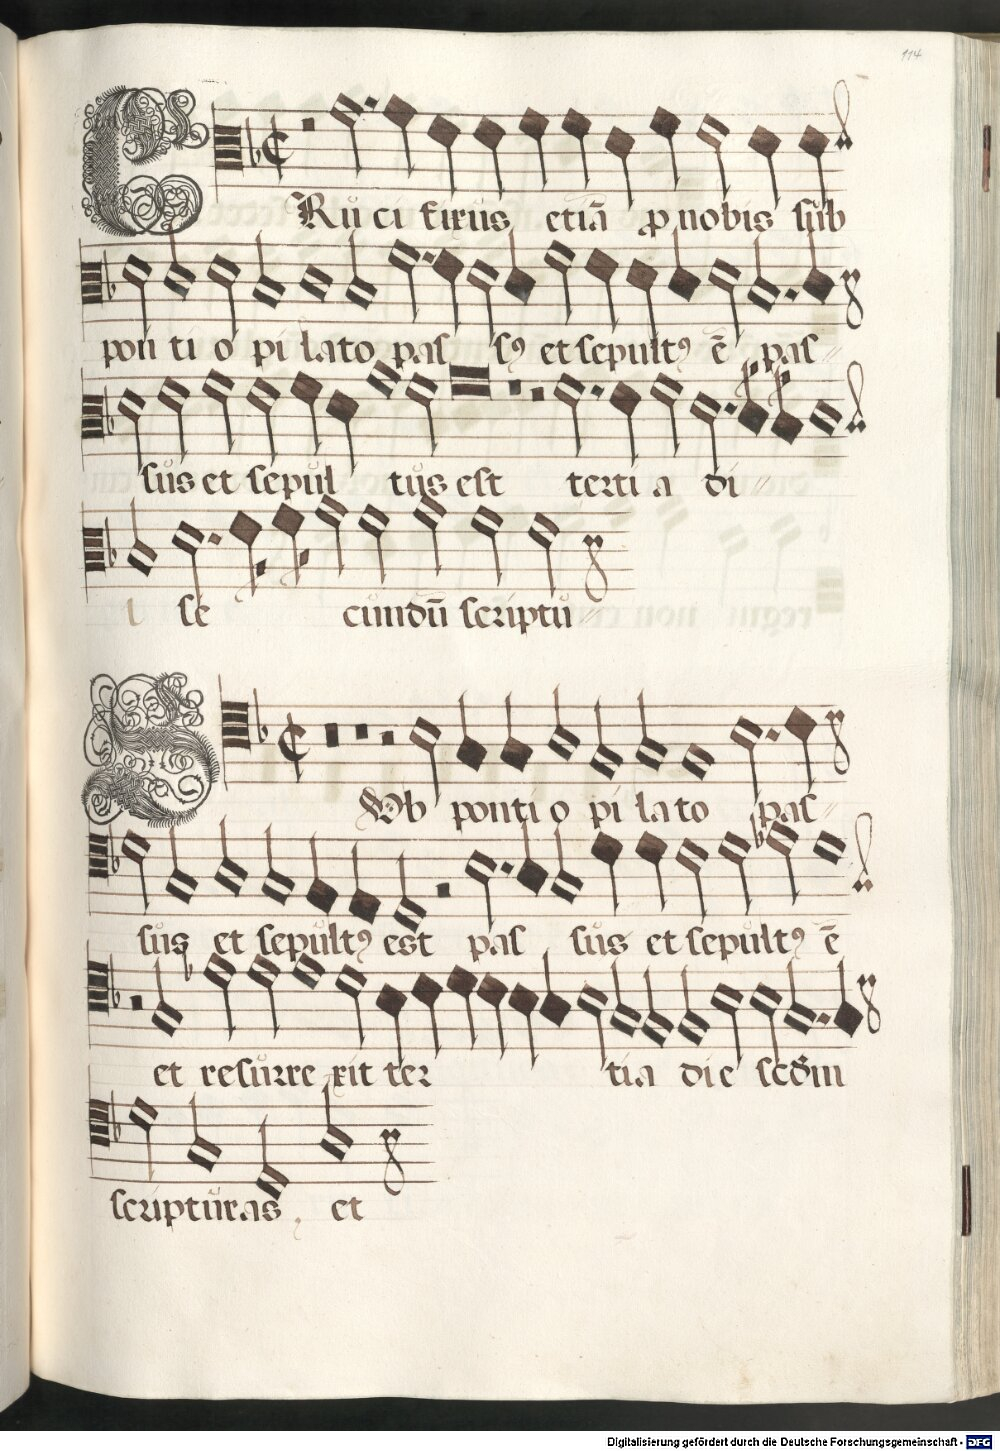 114
CRucifixus etiã ꝓ nobis sub
ponti o pi lato pas sꝰ et sepultꝰ ẽ pas〃
sus et sepul tus est terti a di〃
se cundũ scriptu〃
SOb ponti o pi lato pas〃
sus et sepultꝰ est pas sus et sepultꝰ ẽ
et resurre xit ter tia die scdm
scripturas, et
Digitalisierung gefördert durch die Deutsche Forschungsgemeinschaft - DFG